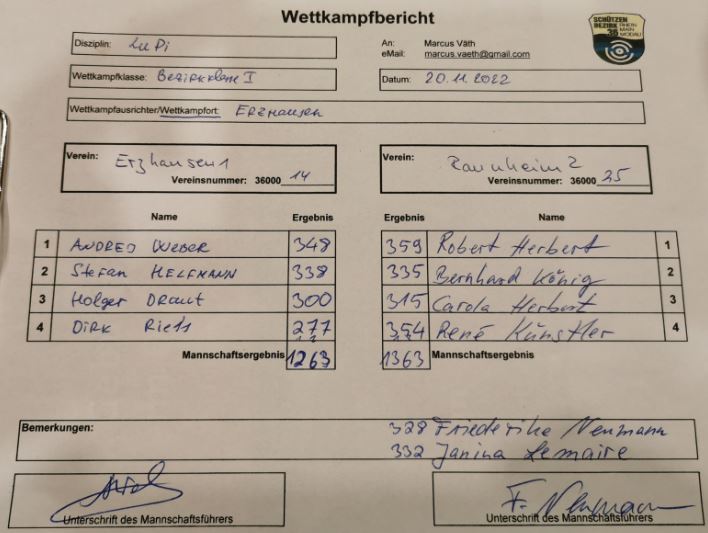 Wettkampfbericht
SCHÜTZEN
BEZIRK RHEIN
36 MAIN
MODAU
Disziplin: LuPi
An: Marcus Väth
eMail: marcus.vaeth@gmail.com
Wettkampfklasse: Bezirksklasse I
Datum: 20.11.2022
Wettkampfausrichter/Wettkampfort: ERZHAUSEN
Verein: Erzhausen 1
Vereinsnummer: 36000 14
Verein: Raunheim 2
Vereinsnummer: 36000 25
Name Ergebnis Ergebnis Name
1 ANDREO WEBER 348 359 Robert Herbert 1
2 Stefan HELFMANN 338 335 Bernhard König 2
3 Holger DRAUT 300 315 Carola Herbert 3
4 DIRK 277 354 René Künstler 4
Mannschaftsergebnis 1263 1363 Mannschaftsergebnis
Bemerkungen: 328 Friederike Neumann
332 Janina Lemaire
F. Neumann
Unterschrift des Mannschaftsführers
Unterschrift des Mannschaftsführers